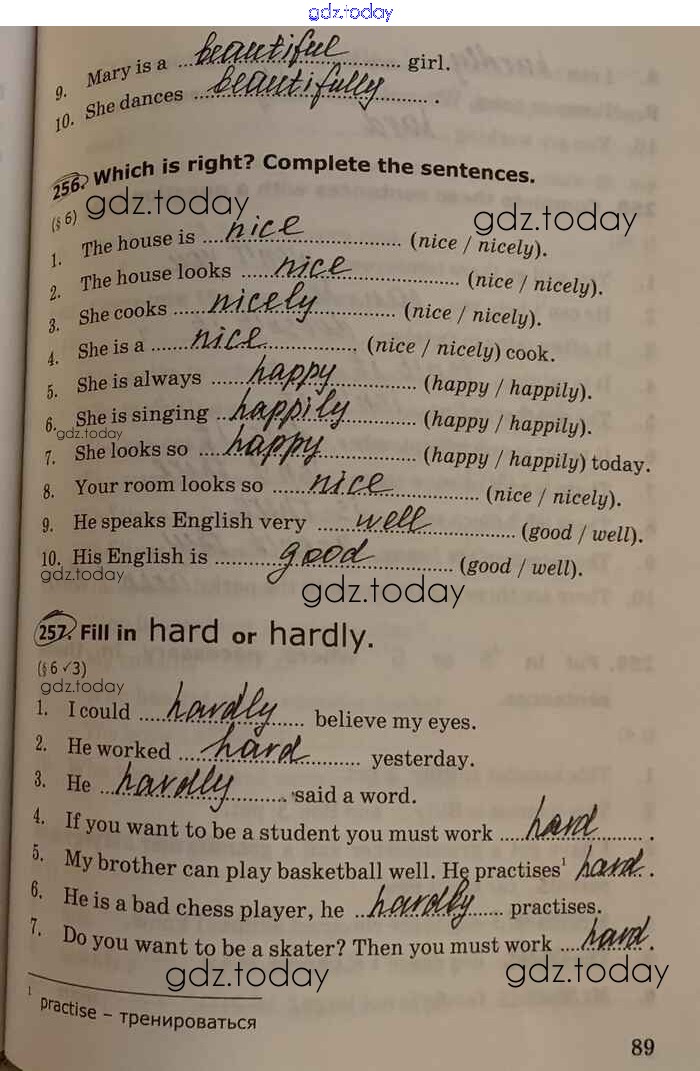 gdz.today
9. Mary is a beautiful girl.
10. She dances beautifully.
256. Which is right? Complete the sentences.
(§ 6) gdz.today gdz.today
1. The house is nice (nice / nicely).
2. The house looks nice (nice / nicely).
3. She cooks nicely (nice / nicely).
4. She is a nice (nice / nicely) cook.
5. She is always happy (happy / happily).
6. She is singing happily (happy / happily).
gdz.today
7. She looks so happy (happy / happily) today.
8. Your room looks so nice (nice / nicely).
9. He speaks English very well (good / well).
10. His English is good (good / well).
gdz.today gdz.today
257. Fill in hard or hardly.
(§ 6 ✓3)
gdz.today
1. I could hardly believe my eyes.
2. He worked hard yesterday.
3. He hardly said a word.
4. If you want to be a student you must work hard.
5. My brother can play basketball well. He practises¹ hard.
6. He is a bad chess player, he hardly practises.
7. Do you want to be a skater? Then you must work hard.
gdz.today gdz.today
¹ practise – тренироваться
89